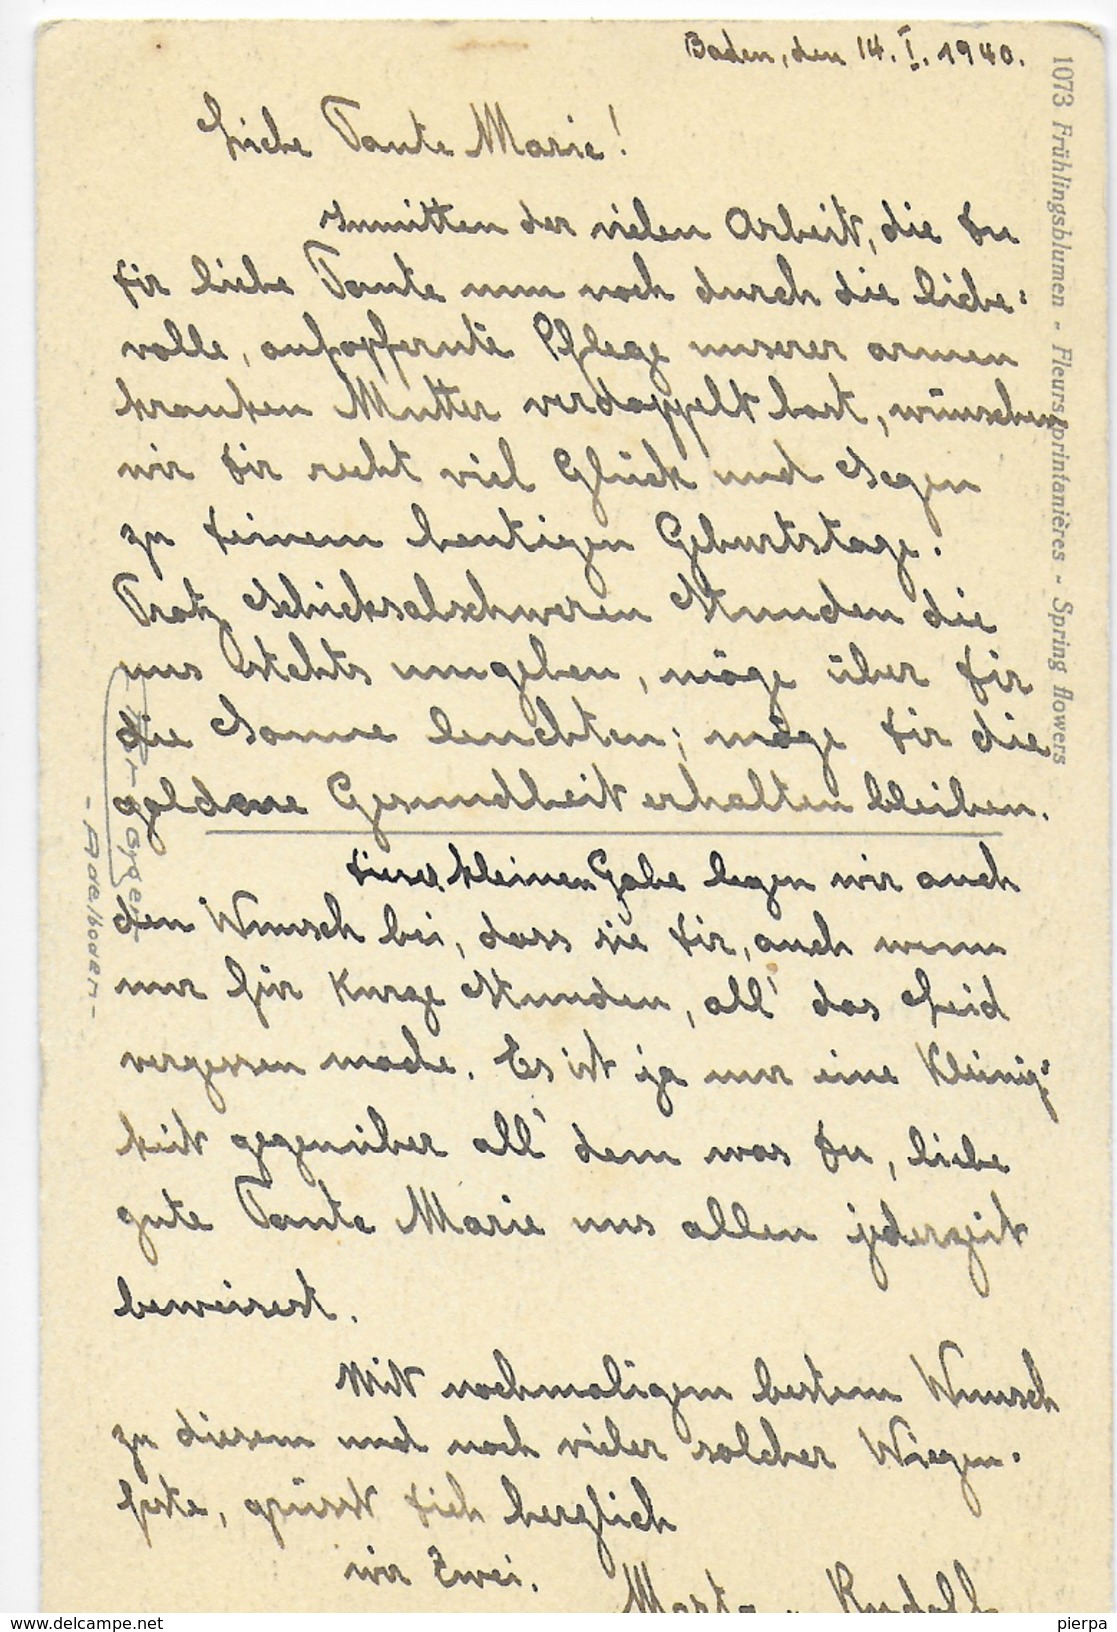 Baden, den 14. I. 1940.
Liebe Tante Marie!
Inmitten der vielen Arbeit, die Du
Dir liebe Tante nun noch durch die liebe=
volle, aufopfernde Pflege unserer armen
kranken Mutter verdoppelt hast, wünschen
wir Dir recht viel Glück und Segen
zu Deinem heutigen Geburtstage.
Trotz Schicksalschweren Stunden die
uns stehts umgeben, möge über Dir
die Sonne leuchten; möge Dir die
goldene Gesundheit erhalten bleiben.
Dieser kleinen Gabe legen wir auch
den Wunsch bei, dass sie Dir, auch wenn
nur für kurze Stunden, all' das Leid
vergessen mache. Es ist ja nur eine Kleinig=
keit gegenüber all' dem was Du, liebe
gute Tante Marie uns allen jederzeit
beweisest.
Mit nochmaligem bestem Wunsch
zu diesem und noch vieler solcher Wiegen-
feste, grüsst Dich herzlich
wir Zwei.
Marta u. Rudolf
1073 Frühlingsblumen - Fleurs printanières - Spring flowers
- Adelboden -
www.delcampe.net
pierpa